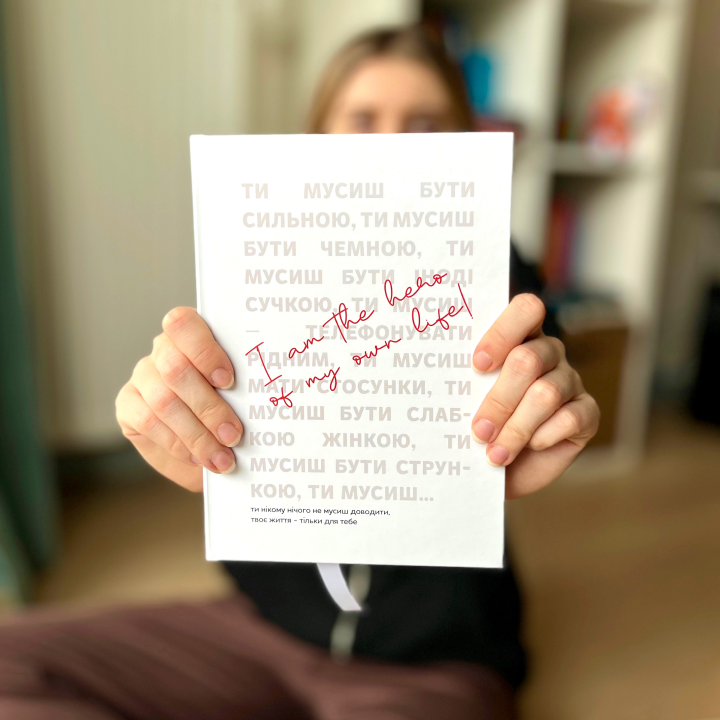 ТИ МУСИШ БУТИ
СИЛЬНОЮ, ТИ МУСИШ
БУТИ ЧЕМНОЮ, ТИ
МУСИШ БУТИ ІНОДІ
СУЧКОЮ, ТИ МУСИШ
– ТЕЛЕФОНУВАТИ
РІДНИМ, ТИ МУСИШ
МАТИ СТОСУНКИ, ТИ
МУСИШ БУТИ СЛАБ-
КОЮ ЖІНКОЮ, ТИ
МУСИШ БУТИ СТРУН-
КОЮ, ТИ МУСИШ...
I am the hero
of my own life!
ти нікому нічого не мусиш доводити,
твоє життя – тільки для тебе